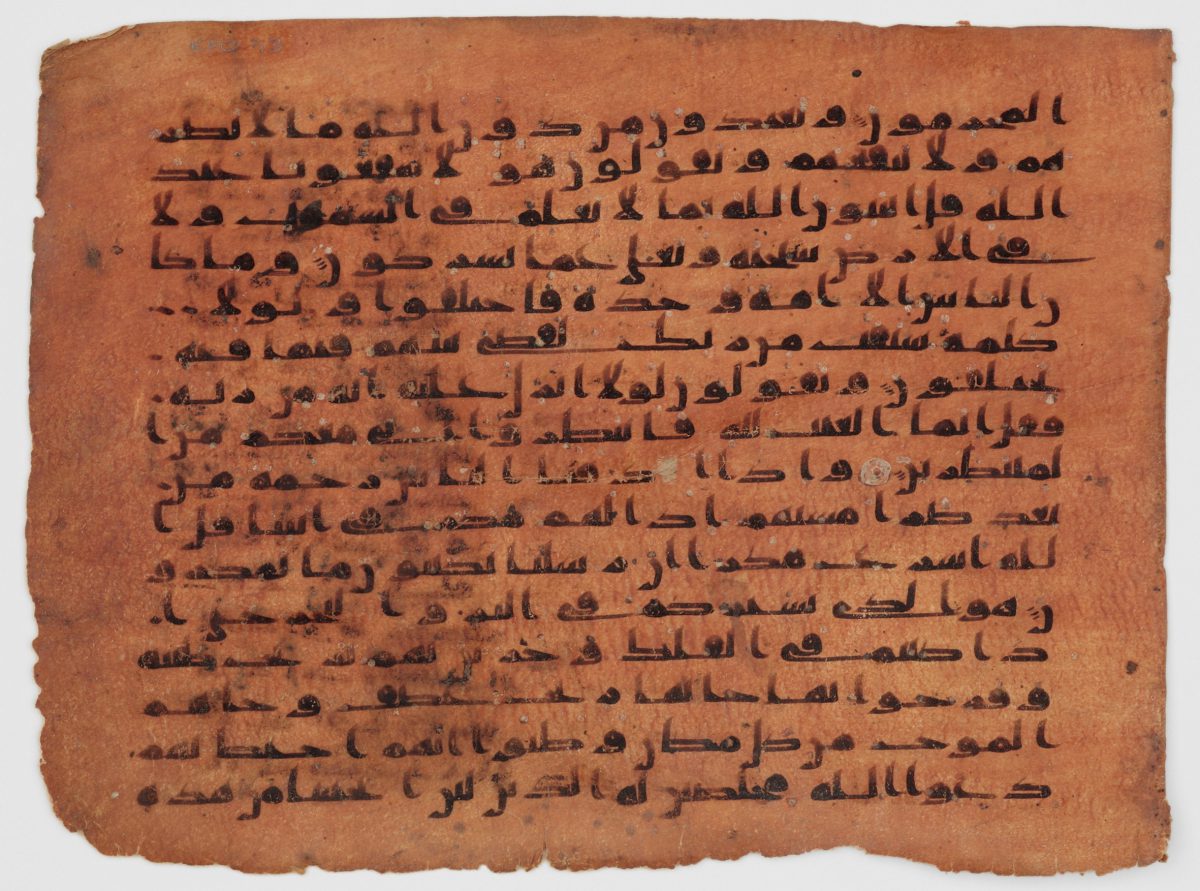 المجرمون ويعبدون من دون الله ما لا يضر
هم ولا ينفعهم ويقولون هولا شفعونا عند
الله قل اتنبون الله بما لا يعلم في السموت ولا
في الارض سبحنه وتعلى عما يشركون وما كا
ن الناس الا امة وحدة فاختلفوا ولولا
كلمة سبقت من ربك لقضي بينهم فيما فيه
يختلفون ويقولون لولا انزل عليه اية من ربه
فقل انما الغيب لله فانتظروا اني معكم من ا
لمنتظرين واذا اذقنا الناس رحمة من
بعد ضرا مستهم اذا لهم مكر في اياتنا قل ا
لله اسرع مكرا ان رسلنا يكتبون ما تمكرو
ن هو الذي يسيركم في البر والبحر حتى ا
ذا كنتم في الفلك وجرين بهم بريح طيبة
وفرحوا بها جاتها ريح عاصف وجاهم
الموج من كل مكان وظنوا انهم احيط بهم
دعوا الله مخلصين له الدين لئن انجيتنا من هذه